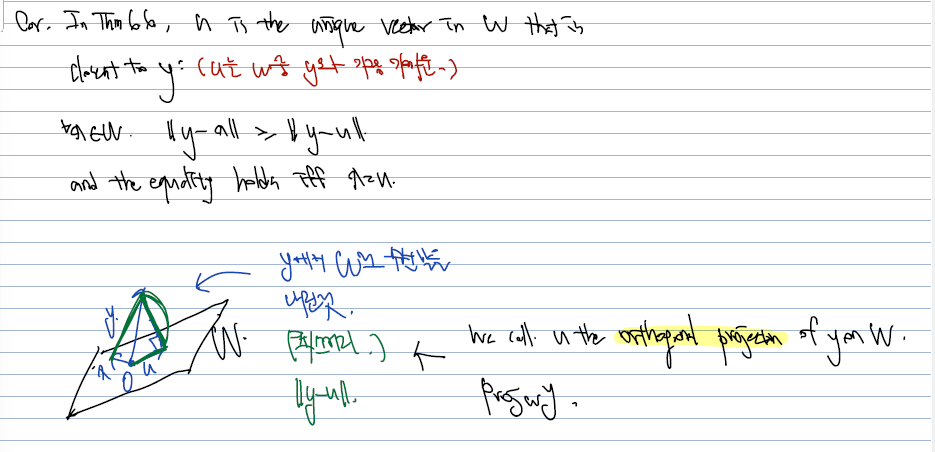 Cor. In Thm 6.6, u is the unique vector in W that is
closest to y : (u는 W중 y와 가장 가까운.)
∀x∈W. ‖y-x‖ ≥ ‖y-u‖.
and the equality holds iff x=u.
y에서 W로 수선을
내린것.
(최단거리.)
‖y-u‖.
We call u the orthogonal projection of y on W.
Proj_W y.
y
x
O
u
W.